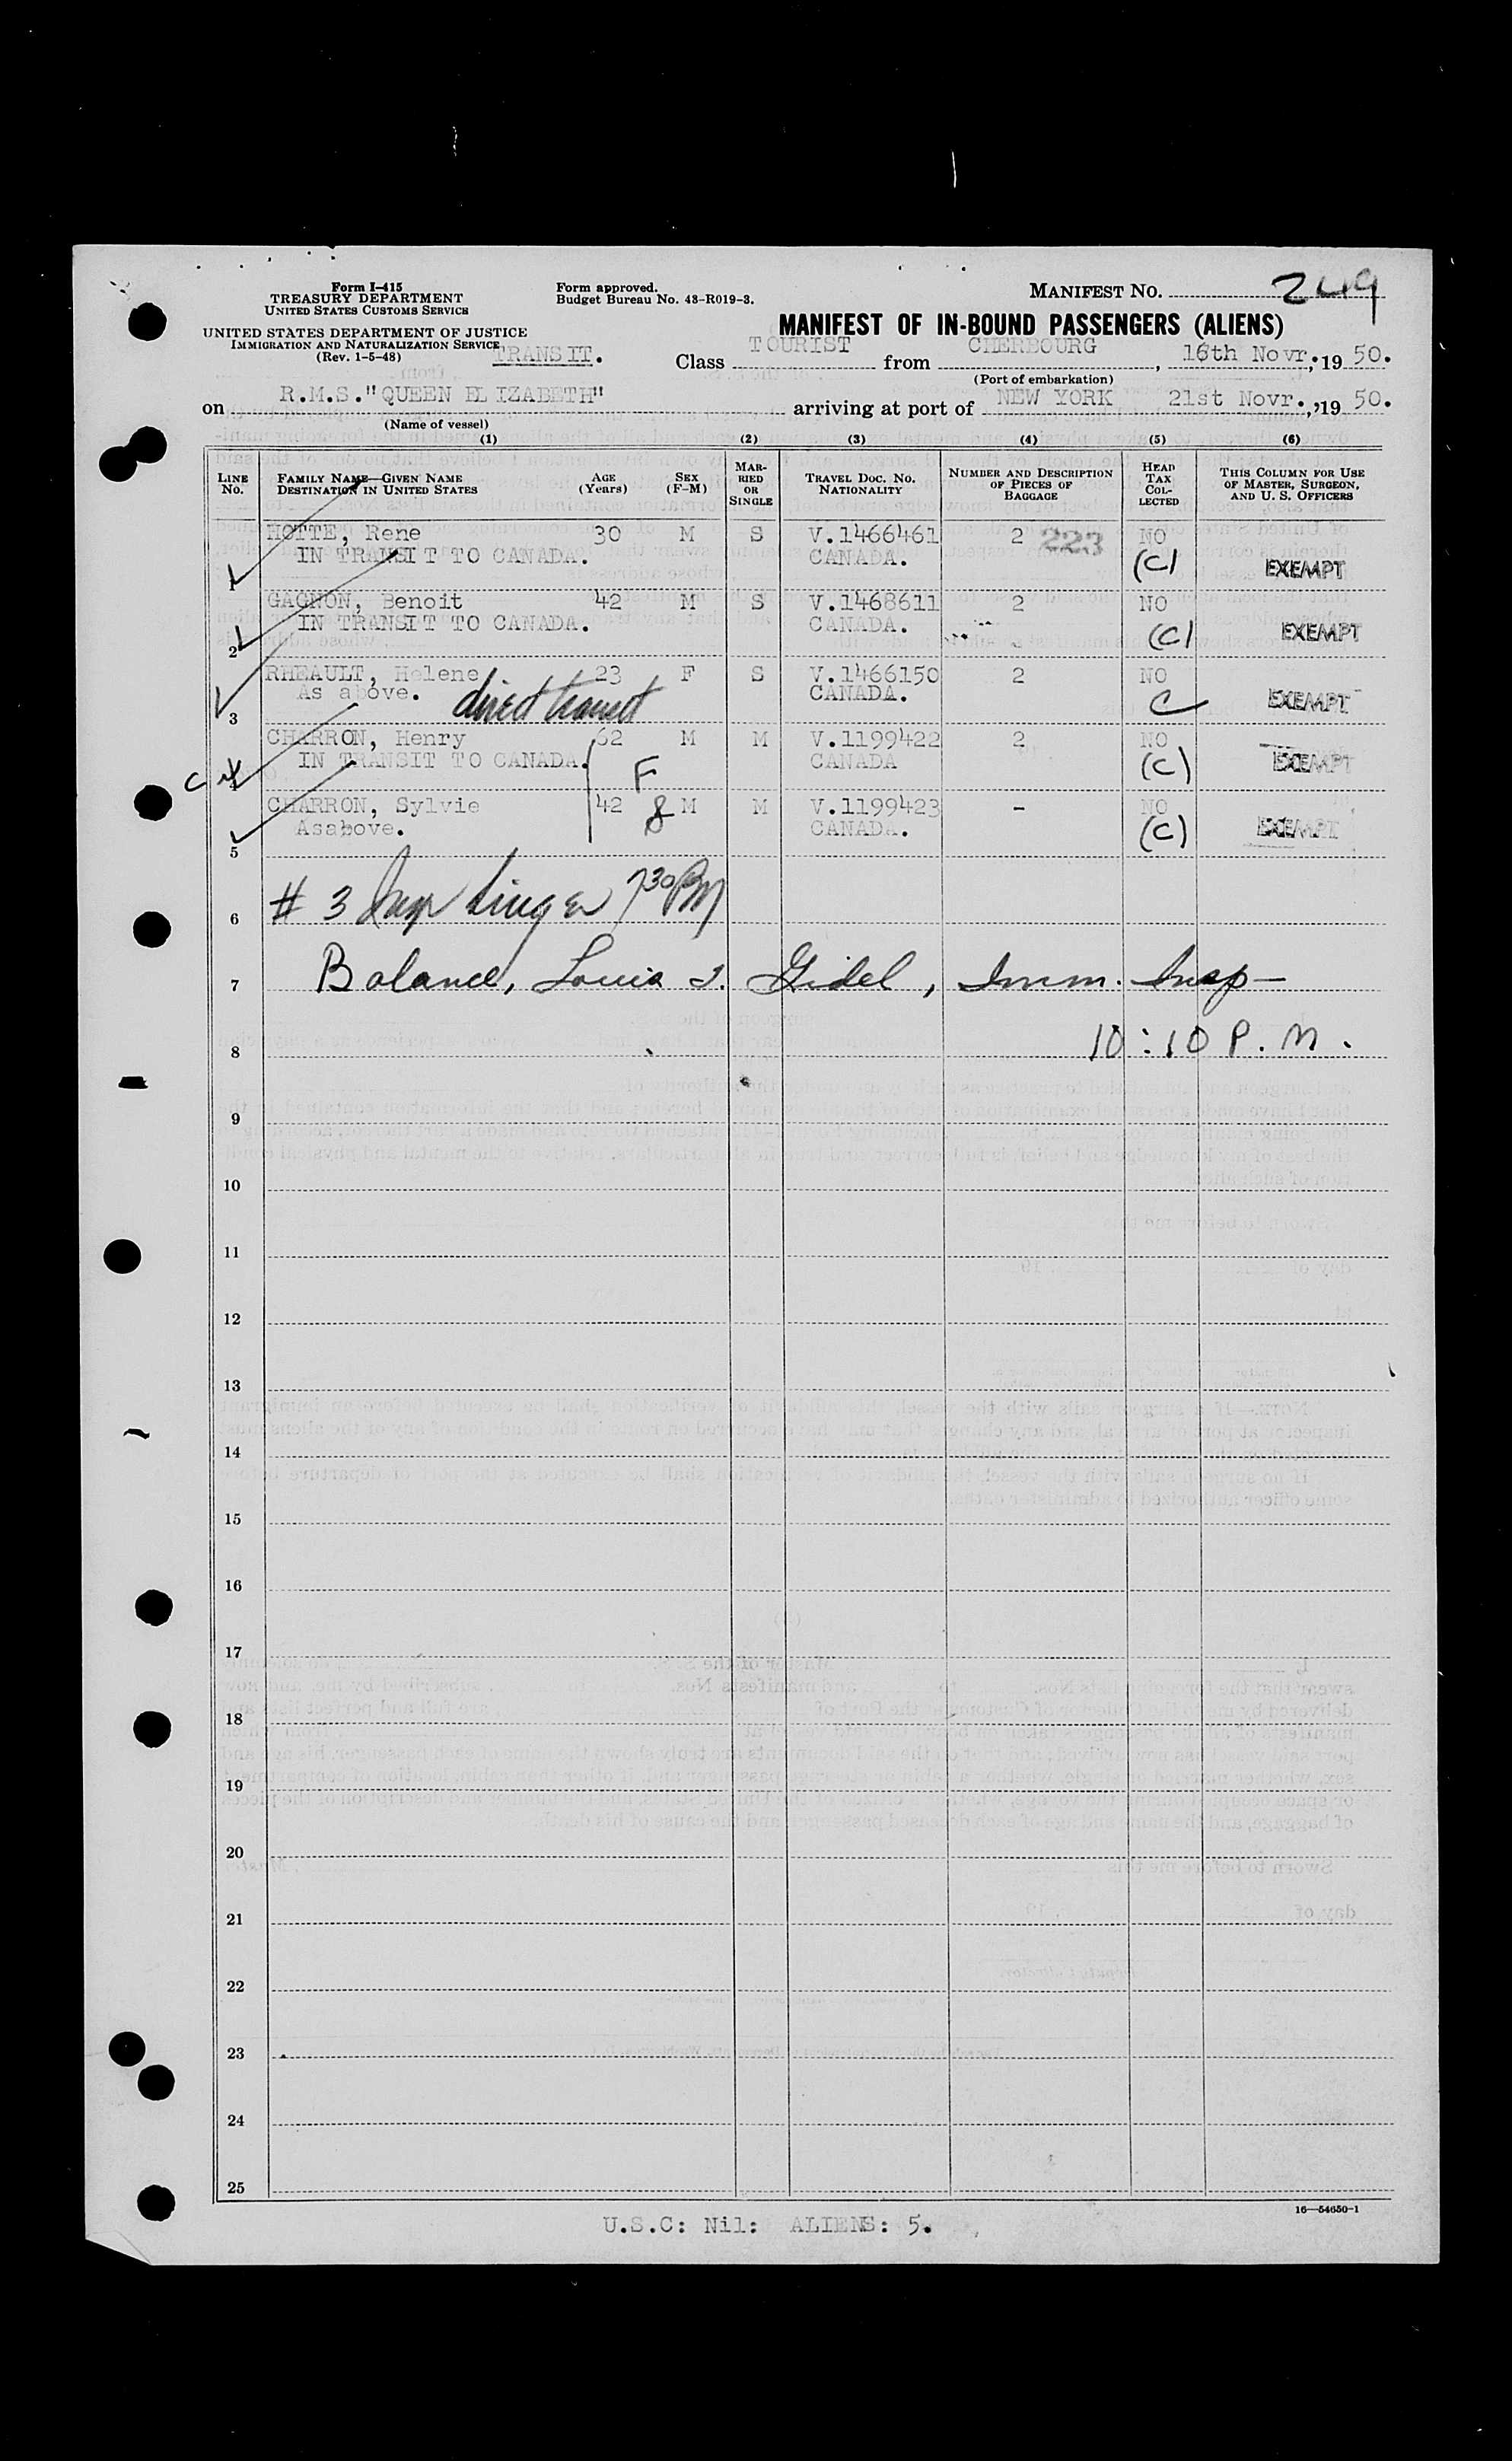 Form I-415
TREASURY DEPARTMENT
UNITED STATES CUSTOMS SERVICE
UNITED STATES DEPARTMENT OF JUSTICE
IMMIGRATION AND NATURALIZATION SERVICE
(Rev. 1-5-48)
Form approved.
Budget Bureau No. 43-R019-3.
MANIFEST NO. 249
MANIFEST OF IN-BOUND PASSENGERS (ALIENS)
TRANSIT. Class TOURIST from CHERBOURG, 16th Novr., 19 50.
(Port of embarkation)
on R.M.S."QUEEN ELIZABETH" arriving at port of NEW YORK 21st Novr., 19 50.
(Name of vessel)
(1) (2) (3) (4) (5) (6)
LINE NO. FAMILY NAME—GIVEN NAME DESTINATION IN UNITED STATES AGE (Years) SEX (F-M) MARRIED OR SINGLE TRAVEL DOC. NO. NATIONALITY NUMBER AND DESCRIPTION OF PIECES OF BAGGAGE HEAD TAX COLLECTED THIS COLUMN FOR USE OF MASTER, SURGEON, AND U. S. OFFICERS
HOTTE, Rene 30 M S V.1466461 2 223 NO
1 IN TRANSIT TO CANADA. CANADA. (C) EXEMPT
GAGNON, Benoit 42 M S V.1468611 2 NO
2 IN TRANSIT TO CANADA. CANADA. (C) EXEMPT
RHEAULT, Helene 23 F S V.1466150 2 NO
3 As above. direct transit CANADA. C EXEMPT
CHARRON, Henry 62 M M V.1199422 2 NO
4 IN TRANSIT TO CANADA. F CANADA (C) EXEMPT
CHARRON, Sylvie 42 M M V.1199423 - NO
5 Asabove. CANADA. (C) EXEMPT
6 # 3 Insp Singer 7 30 PM
7 Balance, Louis I. Gidel, Imm. Insp—
8 10:10 P.M.
9
10
11
12
13
14
15
16
17
18
19
20
21
22
23
24
25
16—54650-1
U.S.C: Nil: ALIENS: 5.